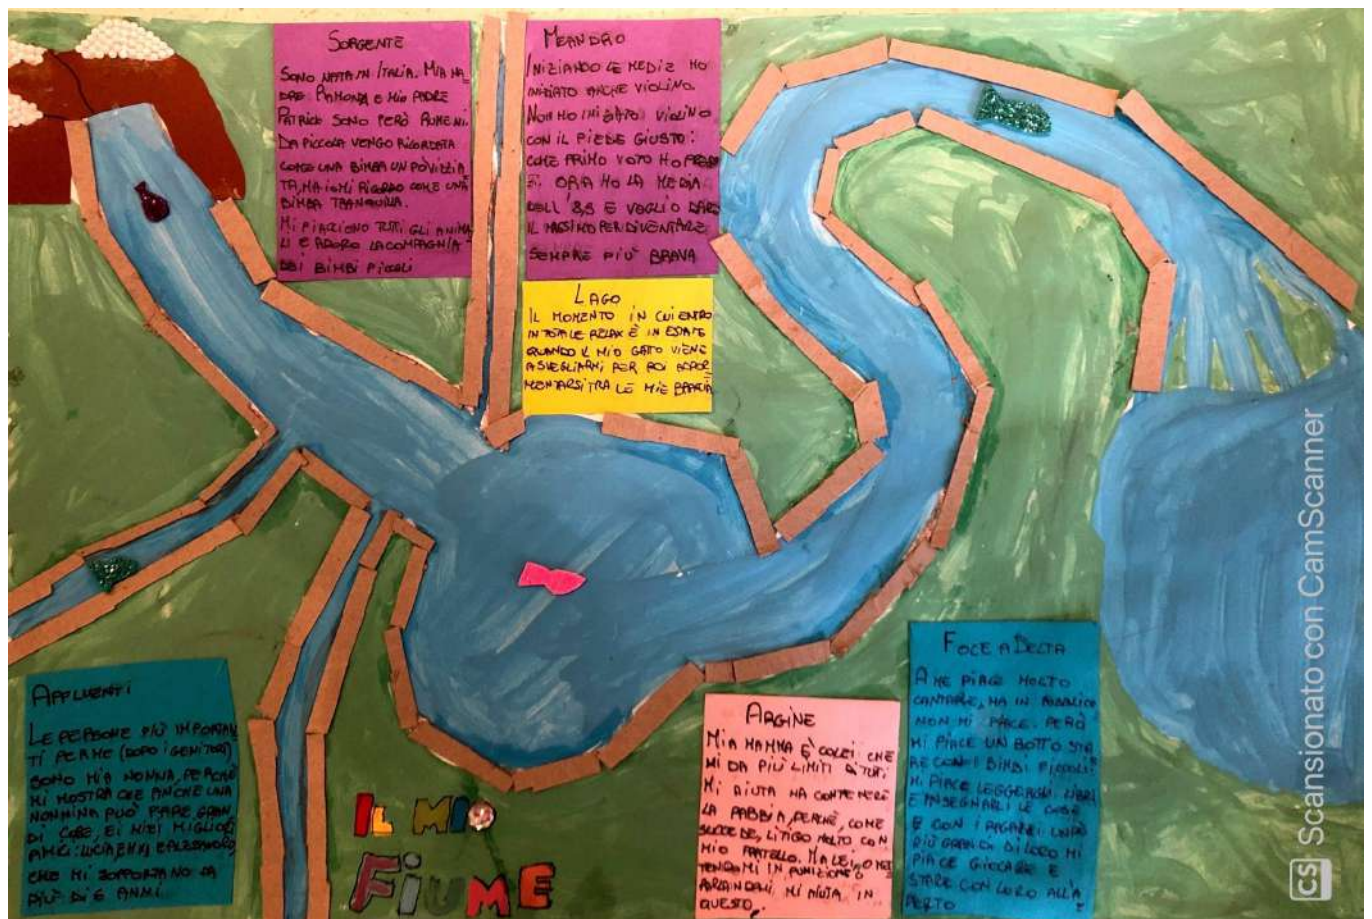 SORGENTE
SONO NATA IN ITALIA. MIA MA
DRE RAMONA E MIO PADRE
PATRICK SONO PERÒ RUMENI.
DA PICCOLA VENGO RICORDATA
COME UNA BIMBA UN PO' VIZIA
TA, MA IO MI RICORDO COME UNA
BIMBA TRANQUILLA.
MI PIACCIONO TUTTI GLI ANIMA
LI E ADORO LA COMPAGNIA
DEI BIMBI PICCOLI
MEANDRO
INIZIANDO LE MEDIE HO
INIZIATO ANCHE VIOLINO.
NON HO INIZIATO VIOLINO
CON IL PIEDE GIUSTO:
COME PRIMO VOTO HO PRESO
ORA HO LA MEDIA
DELL' 8,5 E VOGLIO DARE
IL MASSIMO PER DIVENTARE
SEMPRE PIÙ BRAVA
LAGO
IL MOMENTO IN CUI ENTRO
IN TOTALE RELAX È IN ESTATE
QUANDO IL MIO GATTO VIENE
A SVEGLIARMI PER POI ADDOR
MENTARSI TRA LE MIE BRACCIA
AFFLUENTI
LE PERSONE PIÙ IMPORTAN
TI PER ME (DOPO I GENITORI)
SONO MIA NONNA, PERCHÈ
MI MOSTRA CHE ANCHE UNA
NONNINA PUÒ FARE GRAN
DI COSE, E I MIEI MIGLIORI
AMICI:
CHE MI SOPPORTANO DA
PIÙ DI 6 ANNI.
IL MIO
FIUME
ARGINE
MIA MAMMA È COLEI CHE
MI DA PIÙ LIMITI DI TUTTI
MI AIUTA HA CONTENERE
LA RABBIA, PERCHÈ, COME
SUCCEDE, LITIGO MOLTO CON
MIO FRATELLO. MA LEI, O MET
TENDOMI IN PUNIZIONE O
PARLANDOMI, MI AIUTA IN
QUESTO.
FOCE A DELTA
A ME PIACE MOLTO
CANTARE, MA IN PUBBLICO
NON MI PIACE. PERÒ
MI PIACE UN BOTTO STA
RE CON I BIMBI PICCOLI:
MI PIACE LEGGERGLI LIBRI
E INSEGNARLI LE COSE
E CON I RAGAZZI UN PÒ
PIÙ GRANDI DI LORO MI
PIACE GIOCARE E
STARE CON LORO ALL'A
PERTO
CS Scansionato con CamScanner